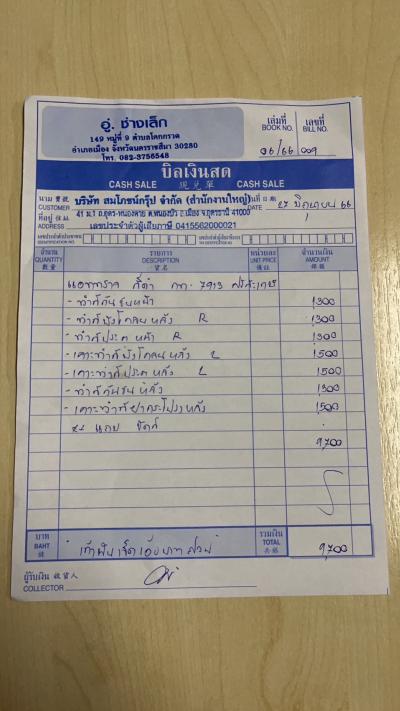 อู่. ช่างเล็ก
149 หมู่ที่ 9 ตำบลโคกกรวด
อำเภอเมือง จังหวัดนครราชสีมา 30280
โทร. 082-3756548
เล่มที่ เลขที่
BOOK NO. BILL NO.
06/66 009
บิลเงินสด
CASH SALE 現兌單 CASH SALE
นาม บริษัท สมโภชน์กรุ๊ป จำกัด (สำนักงานใหญ่) วันที่
CUSTOMER DATE 27 มิถุนายน 66
ที่อยู่ 41 ม.1 ถ.อุดร-หนองคาย ต.หนองบัว อ.เมือง จ.อุดรธานี 41000
ADDRESS เลขประจำตัวผู้เสียภาษี 0415562000021
จำนวน รายการ หน่วยละ จำนวนเงิน
QUANTITY DESCRIPTION UNIT PRICE AMOUNT
數量 貨名
- ทำสีกันชนหน้า 1300
- ทำสีบังโคลน หลัง R 1300
- ทำสีประตู หน้า R 1300
- เคาะทำสีบังโคลนหลัง L 1500
- เคาะทำสีประตูหลัง L 1500
- ทำสีกันชนหลัง 1300
- เคาะทำสีฝากระโปรงหลัง 1500
9,700
บาท รวมเงิน
BAHT TOTAL
เก้าพันเจ็ดร้อยบาทถ้วน 9,700
ผู้รับเงิน 收貨人
COLLECTOR